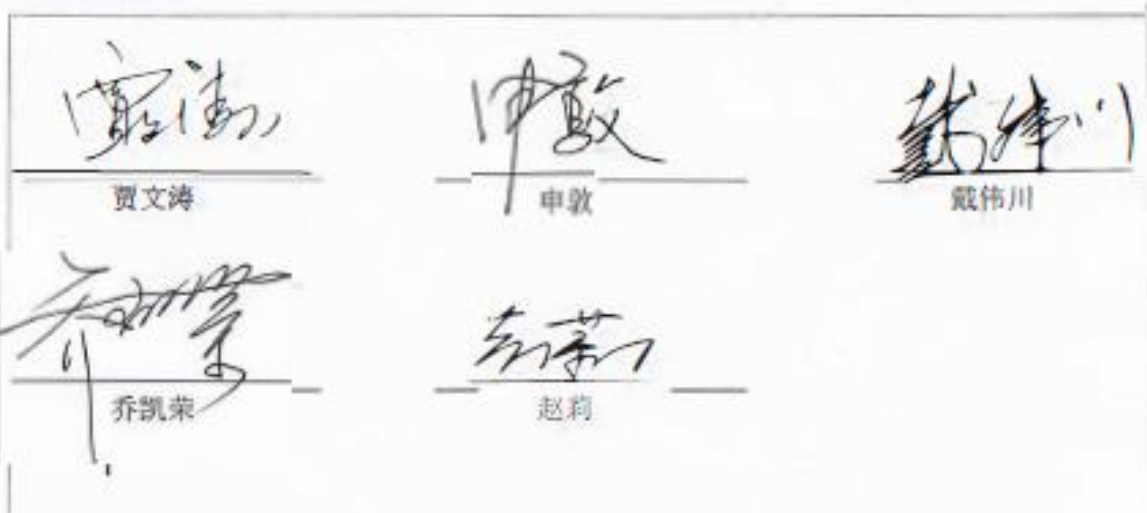 贾文涛 申敦 戴伟川
贾文涛 申敦 戴伟川
乔凯荣 赵莉
乔凯荣 赵莉